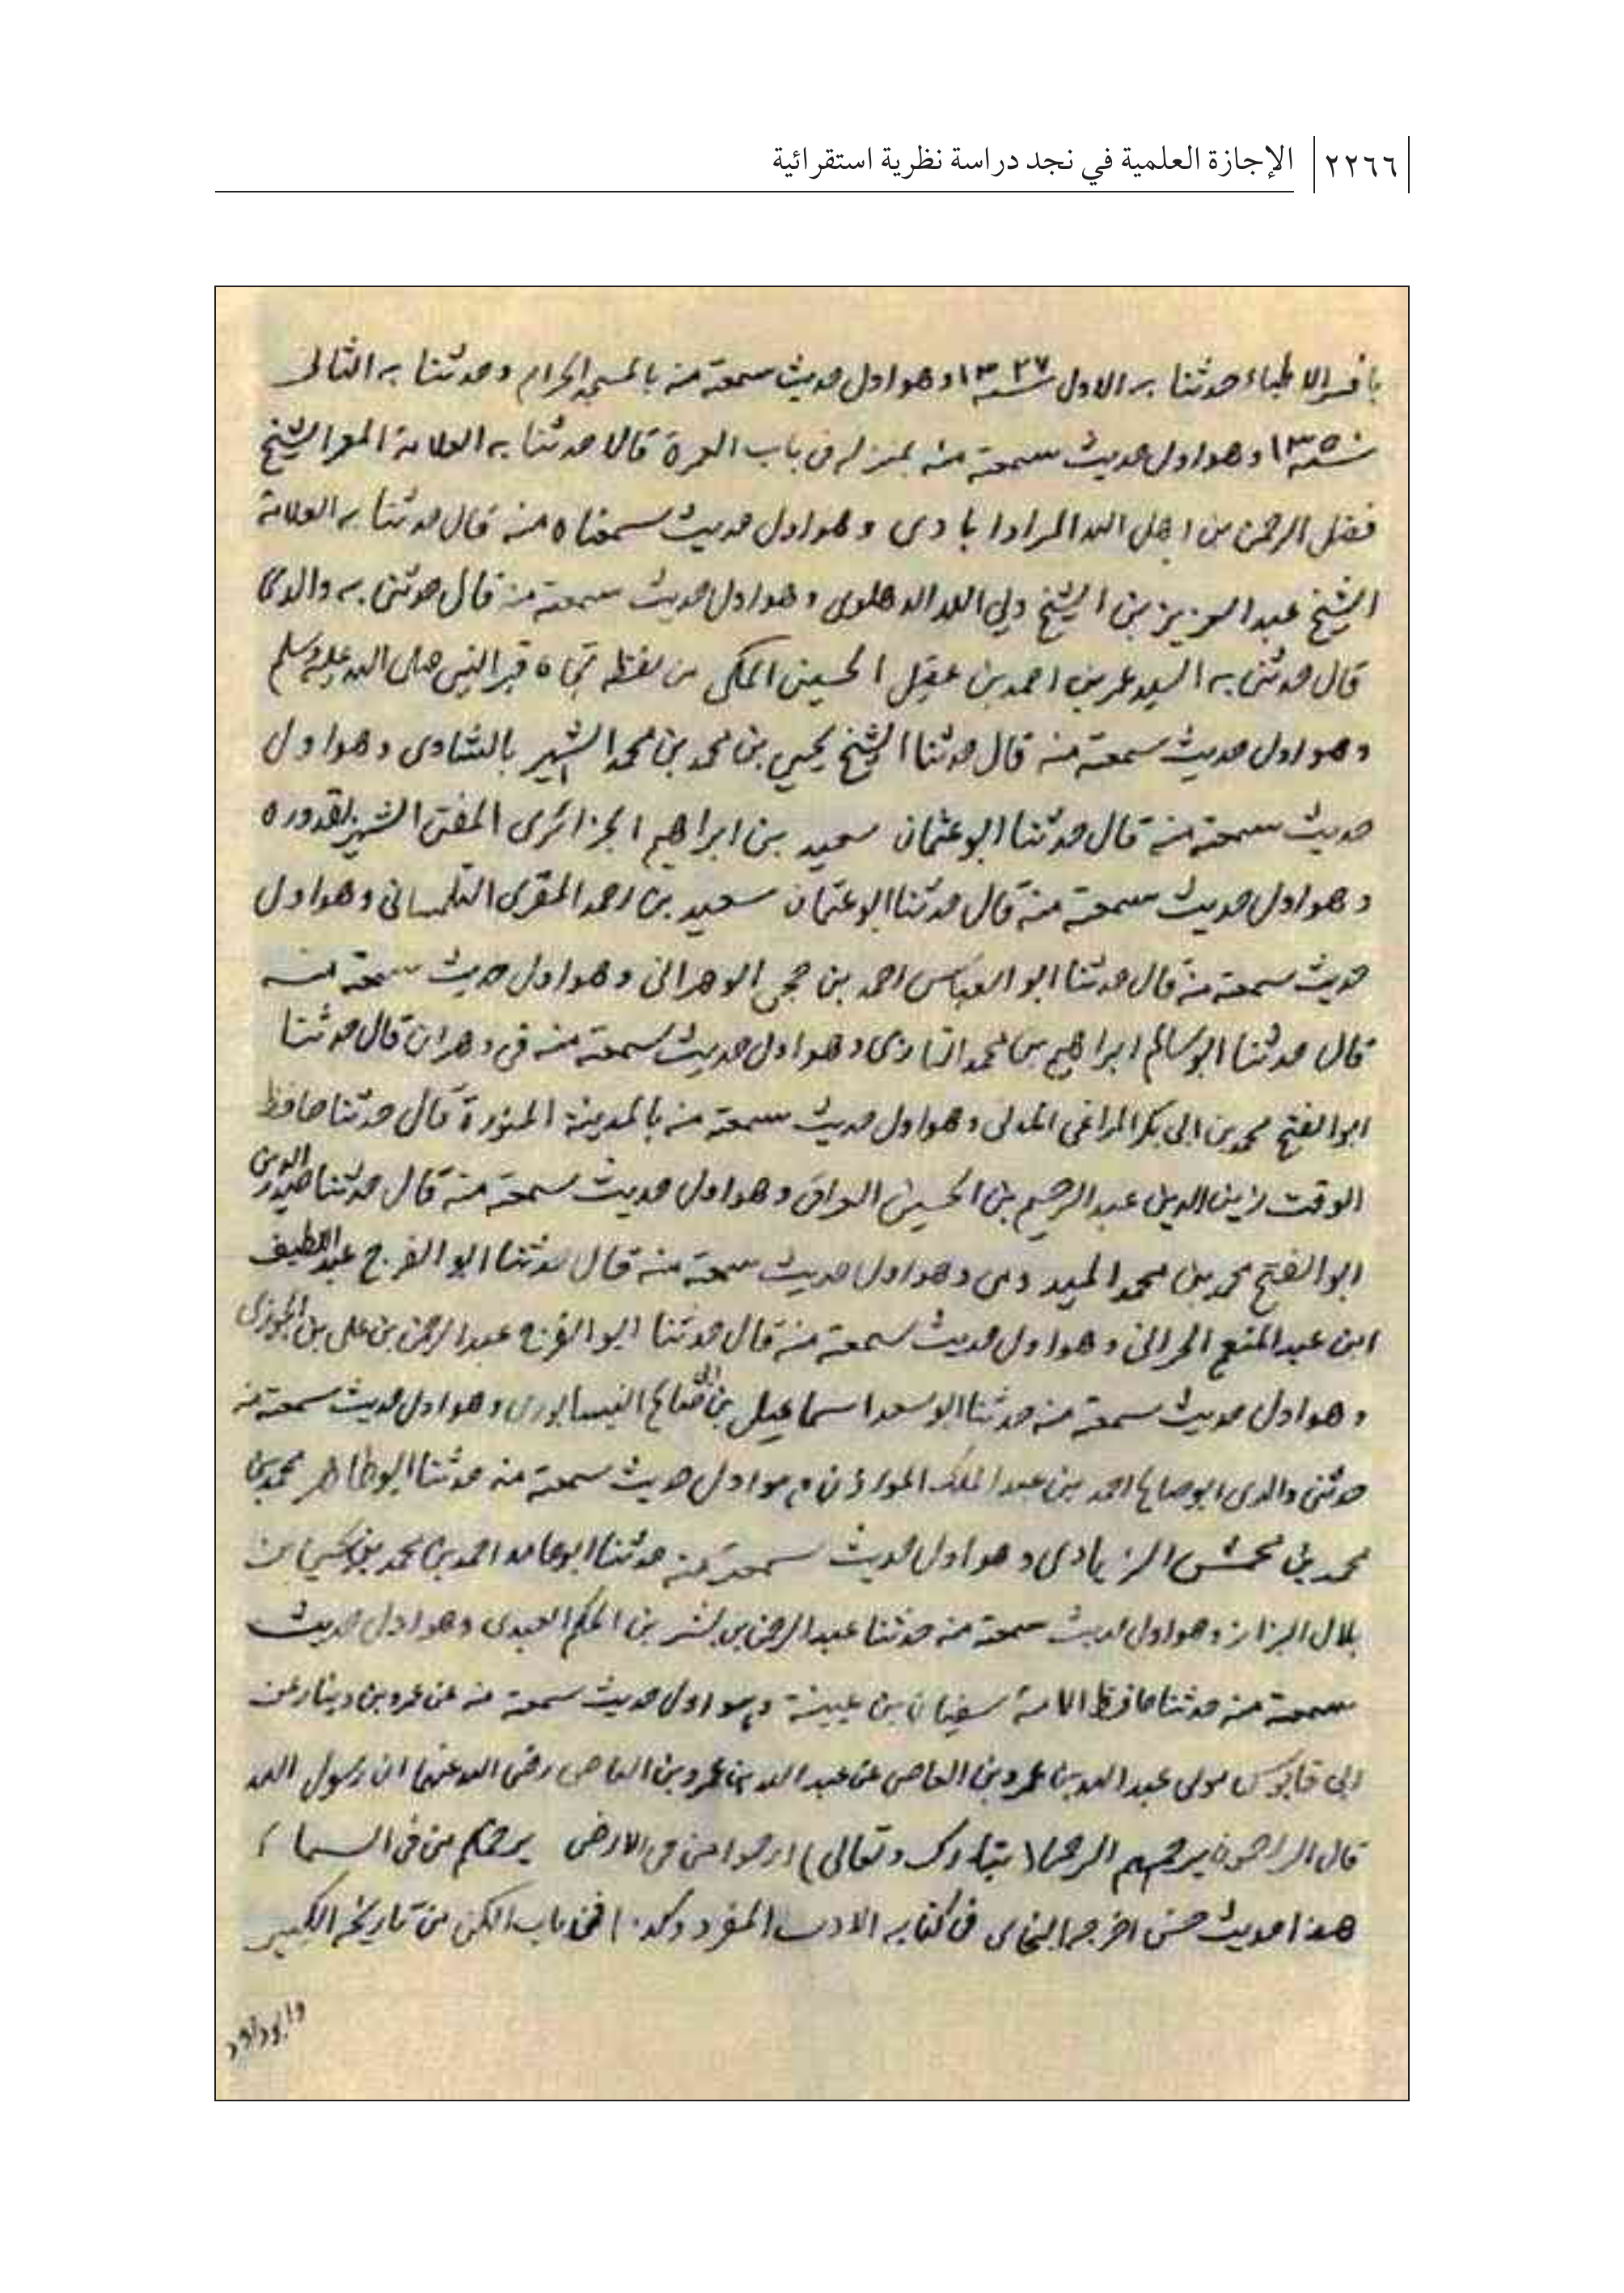 ٢٢٦٦ الإجازة العلمية في نجد دراسة نظرية استقرائية
حدثنا به الاول سنة ١٣٢٧ وهو اول حديث سمعته منه بالمسجد الحرام وحدثنا به الثانى
سنة ١٣٥٠ وهو اول حديث سمعته منه بمنزله فى باب العمرة قالا حدثنا به العلامة المعمر الشيخ
فضل الرحمن بن اهل الله المرادابادى وهو اول حديث سمعناه منه قال حدثنا به العلامة
الشيخ عبد العزيز بن الشيخ ولي الله الدهلوى وهو اول حديث سمعته منه قال حدثنى به والدى
قال حدثنى به السيد عمر بن احمد بن عقيل الحسينى المكى من لفظه تجاه قبر النبى صلى الله عليه وسلم
وهو اول حديث سمعته منه قال حدثنا الشيخ يحيى بن محمد بن محمد الشهير بالشاوى وهو اول
حديث سمعته منه قال حدثنا ابو عثمان سعيد بن ابراهيم الجزائرى المفتى الشهير بقدوره
وهو اول حديث سمعته منه قال حدثنا ابو عثمان سعيد بن احمد المقرى التلمسانى وهو اول
حديث سمعته منه قال حدثنا ابو العباس احمد بن حجى الوهرانى وهو اول حديث سمعته منه
قال حدثنا ابو سالم ابراهيم بن محمد التازى وهو اول حديث سمعته منه فى وهران قال حدثنا
ابو الفتح محمد بن ابى بكر المراغى المدنى وهو اول حديث سمعته منه بالمدينة المنورة قال حدثنا حافظ
الوقت زين الدين عبد الرحيم بن الحسين العراقى وهو اول حديث سمعته منه قال حدثنا صدر الدين
ابو الفتح محمد بن محمد الميدومى وهو اول حديث سمعته منه قال حدثنا ابو الفرج عبد اللطيف
ابن عبد المنعم الحرانى وهو اول حديث سمعته منه قال حدثنا ابو الفرج عبد الرحمن بن على بن الجوزى
وهو اول حديث سمعته منه حدثنا ابو سعد اسماعيل بن ابى صالح النيسابورى وهو اول حديث سمعته منه
حدثنى والدى ابو صالح احمد بن عبد الملك المؤذن وهو اول حديث سمعته منه حدثنا ابو طاهر محمد بن
محمد بن محمش الزيادى وهو اول حديث سمعته منه حدثنا ابو حامد احمد بن محمد بن يحيى بن
بلال البزاز وهو اول حديث سمعته منه حدثنا عبد الرحمن بن بشر بن الحكم العبدى وهو اول حديث
سمعته منه حدثنا حافظ الامة سفيان بن عيينة وهو اول حديث سمعته منه عن عمرو بن دينار عن
ابى قابوس مولى عبد الله بن عمرو بن العاص عن عبد الله بن عمرو بن العاص رضى الله عنهما ان رسول الله
قال الراحمون يرحمهم الرحمن تبارك وتعالى ارحموا من فى الارض يرحمكم من فى السماء
هذا حديث حسن اخرجه البخارى فى كتابه الادب المفرد وكذا فى باب الكنى من تاريخه الكبير
وابو داود